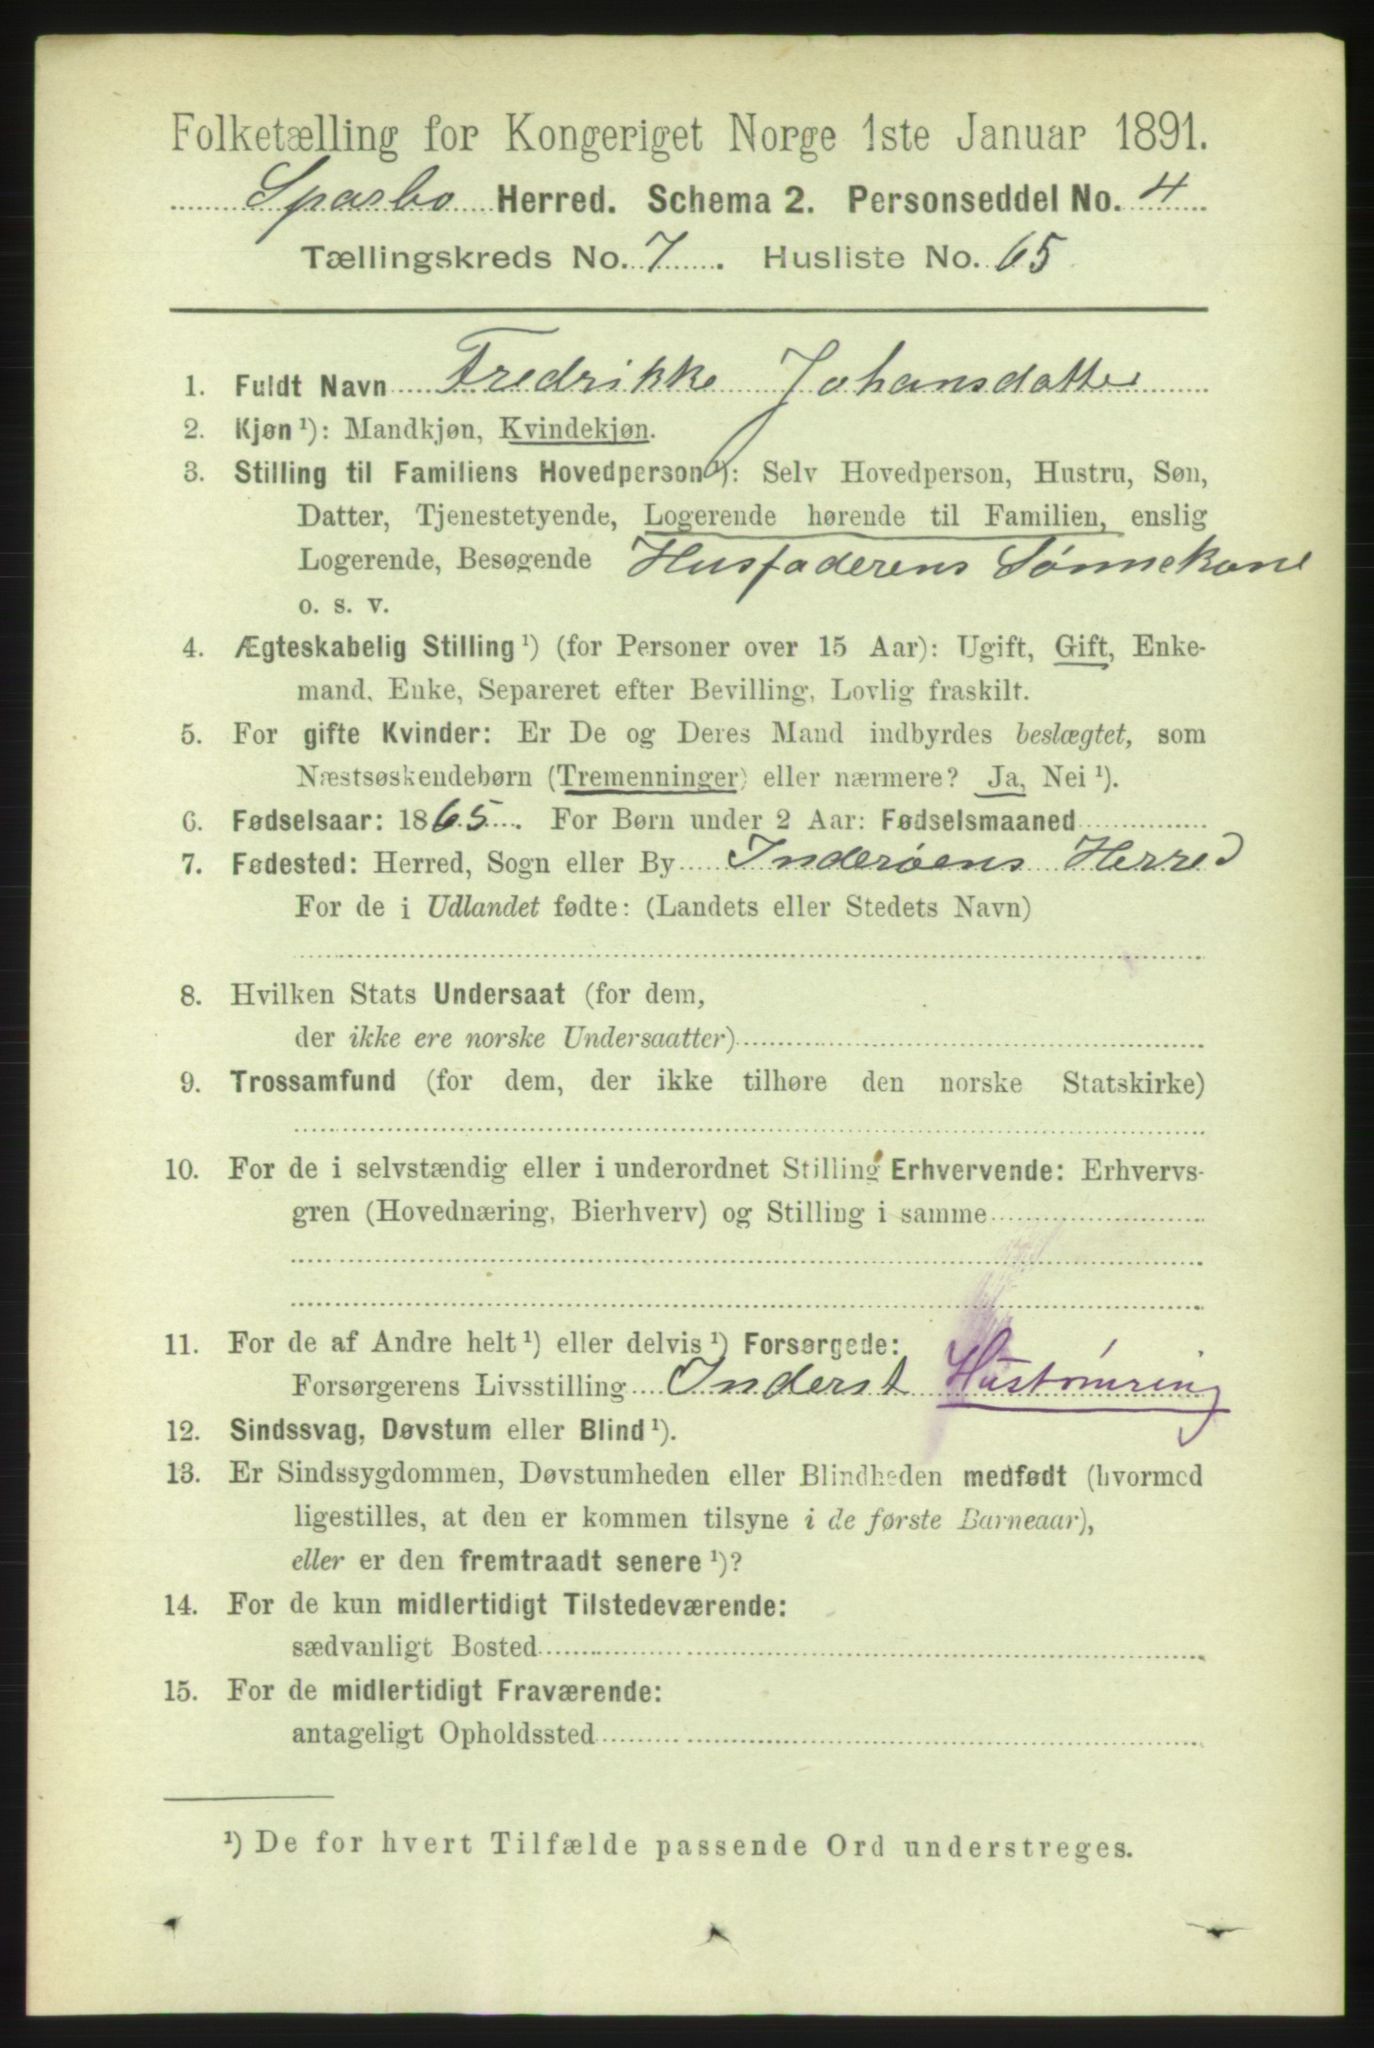 Folketælling for Kongeriget Norge 1ste Januar 1891.
Sparbo Herred. Schema 2. Personseddel No. 4
Tællingskreds No. 7. Husliste No. 65
1. Fuldt Navn Fredrikke Johansdatter
2. Kjøn ¹): Mandkjøn, Kvindekjøn.
3. Stilling til Familiens Hovedperson ¹): Selv Hovedperson, Hustru, Søn,
Datter, Tjenestetyende, Logerende hørende til Familien, enslig
Logerende, Besøgende Husfaderens Sønnekone
o. s. v.
4. Ægteskabelig Stilling ¹) (for Personer over 15 Aar): Ugift, Gift, Enke-
mand, Enke, Separeret efter Bevilling, Lovlig fraskilt.
5. For gifte Kvinder: Er De og Deres Mand indbyrdes beslægtet, som
Næstsøskendebørn (Tremenninger) eller nærmere? Ja, Nei ¹).
6. Fødselsaar: 1865. For Børn under 2 Aar: Fødselsmaaned
7. Fødested: Herred, Sogn eller By Inderøens Herred
For de i Udlandet fødte: (Landets eller Stedets Navn)
8. Hvilken Stats Undersaat (for dem,
der ikke ere norske Undersaatter)
9. Trossamfund (for dem, der ikke tilhøre den norske Statskirke)
10. For de i selvstændig eller i underordnet Stilling Erhvervende: Erhvervs-
gren (Hovednæring, Bierhverv) og Stilling i samme
11. For de af Andre helt ¹) eller delvis ¹) Forsørgede:
Forsørgerens Livsstilling Inderst Hustømring
12. Sindssvag, Døvstum eller Blind ¹).
13. Er Sindssygdommen, Døvstumheden eller Blindheden medfødt (hvormed
ligestilles, at den er kommen tilsyne i de første Barneaar),
eller er den fremtraadt senere ¹)?
14. For de kun midlertidigt Tilstedeværende:
sædvanligt Bosted
15. For de midlertidigt Fraværende:
antageligt Opholdssted
¹) De for hvert Tilfælde passende Ord understreges.